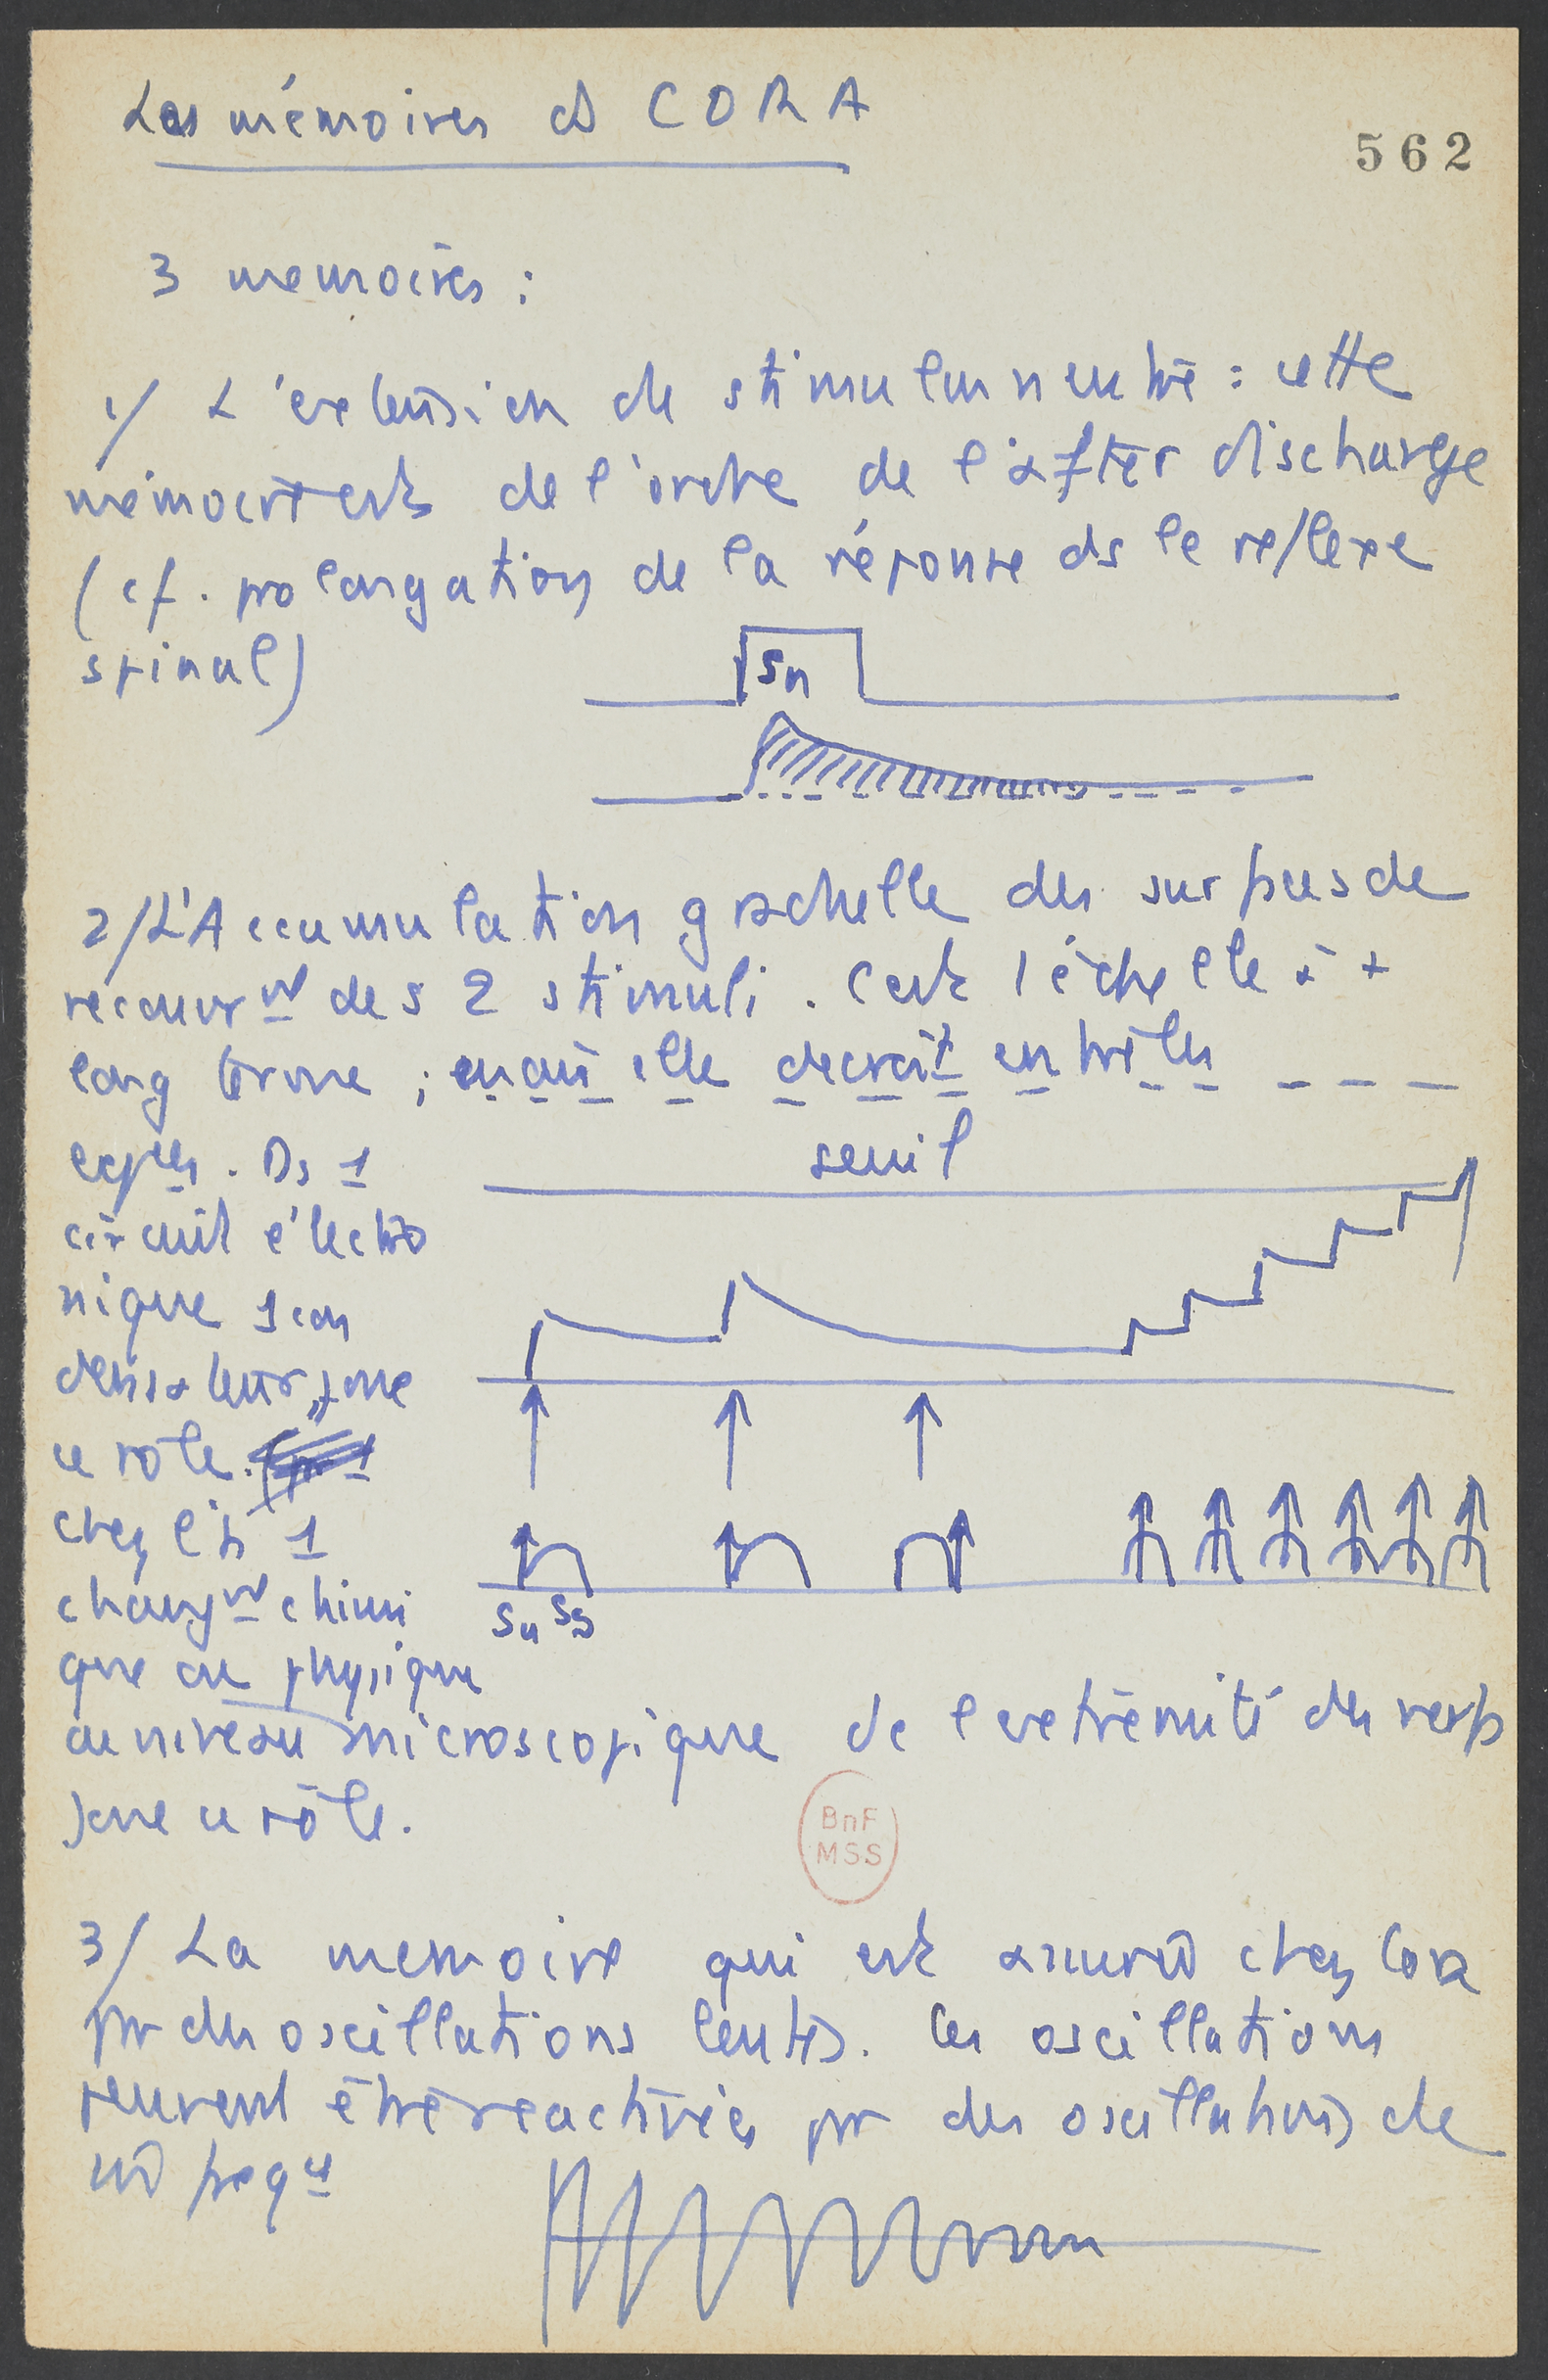 Les mémoires de CORA
562
3 memoires :
1/ L'extension de stimulus neutre : cette
mémoire est de l'ordre de l'after discharge
(cf. prolongation de la réponse ds le reflexe
spinal)
Sn
2/ L'Accumulation graduelle des surfaces de
recouvrt des 2 stimuli. C'est l'échelle à +
long terme ; mais elle décroit entre les
seuil
expces. Ds 1
circuit électro
nique 1 con
densateur joue
ce role.
chez l'h 1
changt chimi
que ou physique
au niveau microscopique de l'extrémité des
joue ce rôle.
Sn Ss
BnF
MSS
3/ La memoire qui est assurée chez Cora
pr des oscillations lentes. Ces oscillations
peuvent être reactivées pr des oscillations de
m̂ freqce